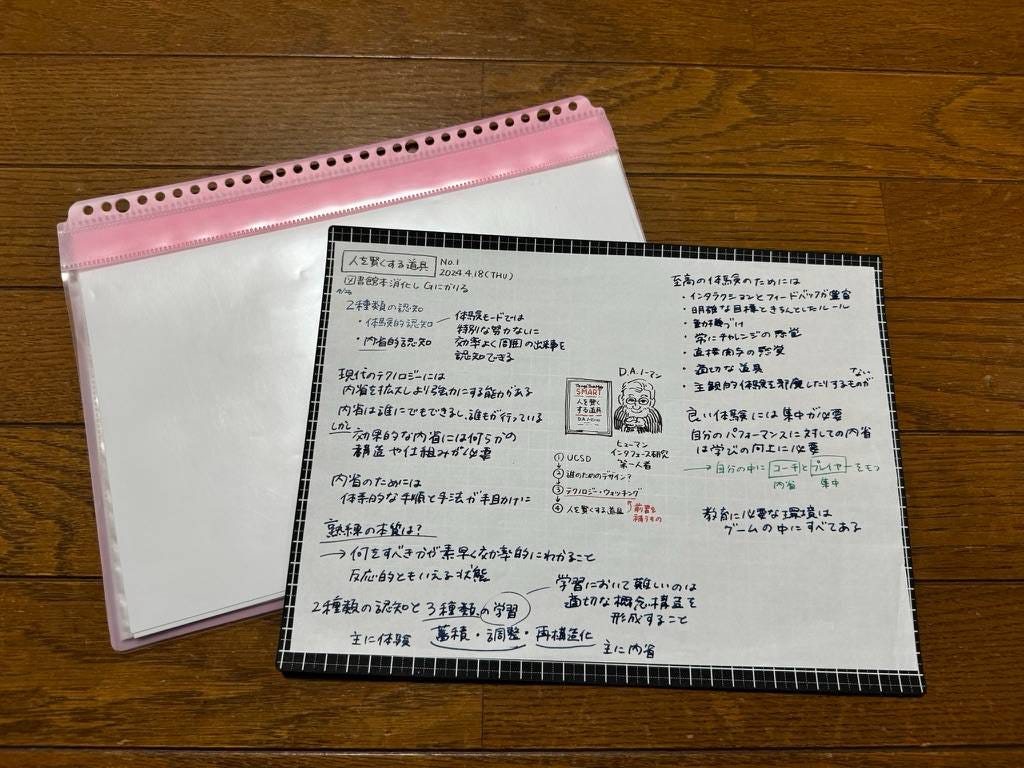 人を賢くする道具
No.1
2024.4.18(THU)
図書館本消化し Gにかりる
2種類の認知
・体験的認知
・内省的認知
体験モードでは
特別な努力なしに
効率よく周囲の出来事を
認知できる
現代のテクノロジーには
内省を拡大しより強力にする能力がある
内省は誰にでもできるし、誰もが行っている
しかし
効果的な内省には何らかの
構造や仕組みが必要
内省のためには
体系的な手順と手法が手助けに
熟練の本質は?
→何をすべきかが素早く効率的にわかること
反応的ともいえる状態
2種類の認知と3種類の学習
主に体験
蓄積・調整・再構造化
主に内省
学習において難しいのは
適切な概念構造を
形成すること
D.A.ノーマン
SMART
人を賢く
する道具
ヒューマン
インタフェース研究
第一人者
① UCSD
② 誰のためのデザイン?
③ テクノロジー・ウォッチング
④ 人を賢くする道具
前書を
補うもの
至高の体験のためには
・インタラクションとフィードバックが豊富
・明確な目標ときちんとしたルール
・動機づけ
・常にチャレンジの感覚
・直接関与の感覚
・適切な道具
・主観的体験を邪魔したりするものが
ない
良い体験には集中が必要
自分のパフォーマンスに対しての内省
は学びの向上に必要
→自分の中にコーチとプレイヤーをもつ
内省 集中
教育に必要な環境は
ゲームの中にすべてある